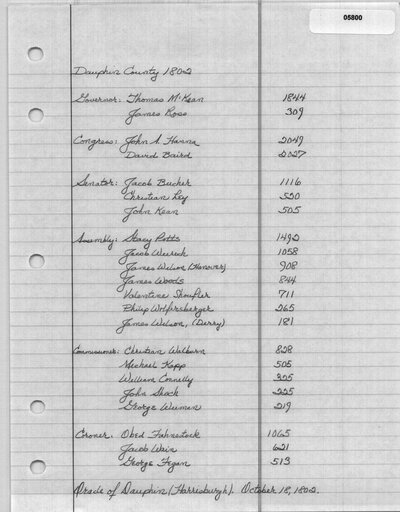 05800
Dauphin County 1802
Governor: Thomas McKean 1844
James Ross 309
Congress: John A. Hanna 2049
David Baird 2027
Senator: Jacob Bucher 1116
Christian Ley 520
John Kean 505
Assembly: Stacy Potts 1492
Jacob 1058
James Wilson (Hanover) 908
James Woods 844
Valentine Shoufler 711
Philip Wolfersberger 265
James Wilson, (Derry) 181
Commissioner: Christian Walborn 828
Michael Kapp 505
William Connelly 325
John Shock 225
George Weiman 219
Croner: Obed Fahnestock 1065
Jacob Wain 621
George Fegan 513
Oracle of Dauphin (Harrisburgh). October 18, 1802.